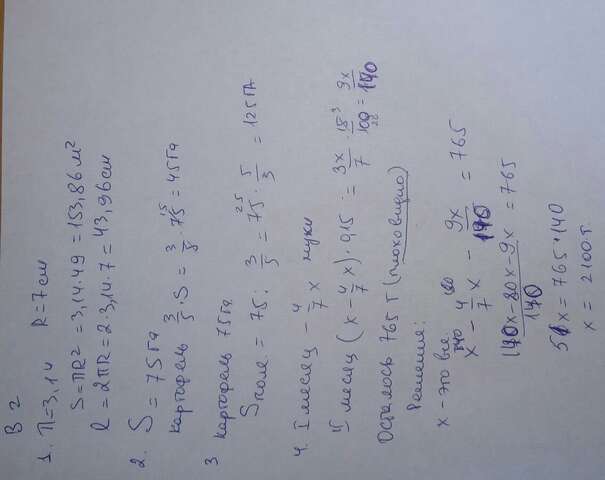 В 2
1. π=3,14 R=7см
S=πR²=3,14·49=153,86м²
l=2πR=2·3,14·7=43,96см
2. S=75га
картофель 3/5·S=3/5·75=45га
3 картофель 75га
Sполе=75:3/5=75·5/3=125га
4. I месяц - 4/7 x муки
II месяц (x-4/7x)·0,15=3x/7·15/100=9x/140
Осталось 765 г (плохо видно)
Решение:
x - это все.
x-4/7x-9x/140=765
140x-80x-9x/140=765
51x=765·140
x=2100г.